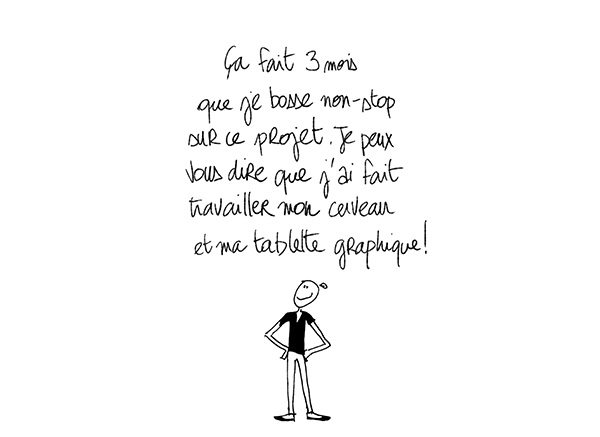 Ça fait 3 mois
que je bosse non-stop
sur ce projet. Je peux
vous dire que j'ai fait
travailler mon cerveau
et ma tablette graphique!